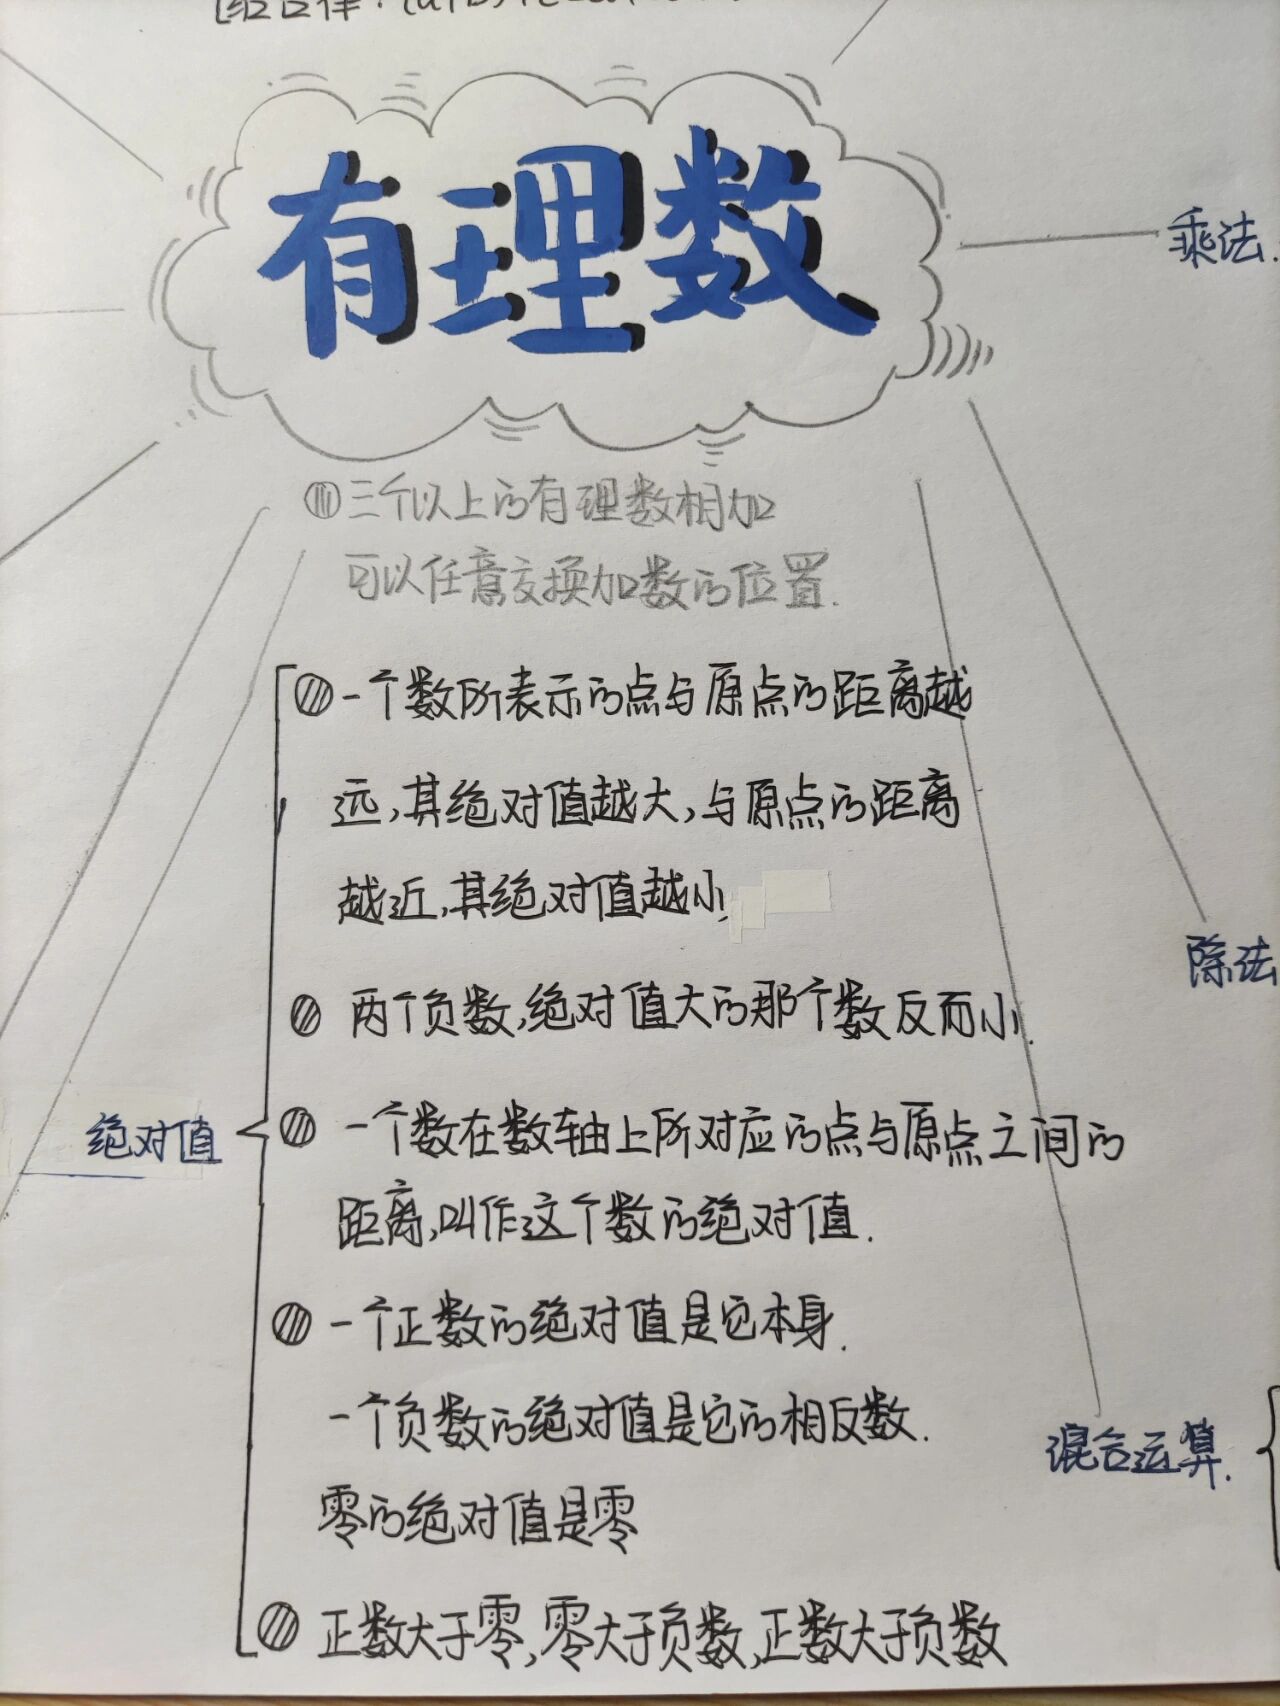 有理数
乘法.
三个以上的有理数相加
可以任意交换加数的位置.
一个数所表示的点与原点的距离越
远,其绝对值越大,与原点的距离
越近,其绝对值越小
除法
两个负数,绝对值大的那个数反而小.
绝对值
一个数在数轴上所对应的点与原点之间的
距离,叫作这个数的绝对值.
一个正数的绝对值是它本身.
一个负数的绝对值是它的相反数.
混合运算.
零的绝对值是零
正数大于零,零大于负数,正数大于负数